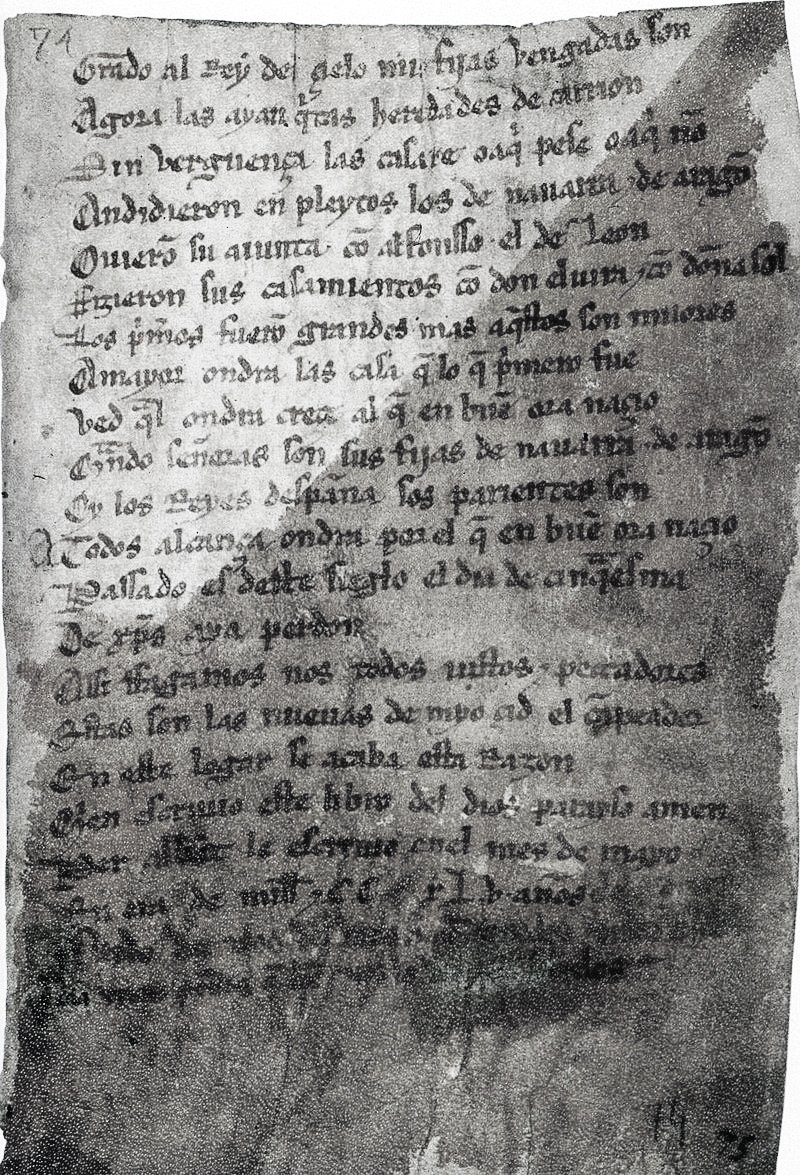 74
Grãdo al Rey del çielo mis fijas vengadas son
Agora las ayan q̃tas heredades de carrion
Sin verguença las casare o aq̃ pese o aq̃ nõ
Andidieron en pleytos los de nauarra ⁊ de aragõ
Ouierõ su aiunta cõ alfonsso el de Leon
ffizieron sus casamientos cõ don eluira ⁊ cõ doña sol
Los p̃meros fuerõ grandes mas aq̃stos son miiores
Amayor ondra las casa q̃ lo q̃ p̃mero fue
Ved q̃l ondra creçe al q̃ en buẽ ora naçio
Quãdo señoras son sus fijas de nauarra ⁊ de aragõ
Oy los Reyes despaña sos parientes son
A Todos alcança ondra por el q̃ en buẽ ora naçio
Passado es deste sieglo el dia de cinq̃esma
De xp̃s aya perdon
Assi ffagamos nos todos iustos ⁊ peccadores
Estas son las nueuas de myo çid el cãpeador
En este logar se acaba esta Razon
Quien escriuio este libro del dios parayso amen
Per abbat le escriuio enel mes de mayo
En era de mill ⁊ C.C. xL.v. años
75